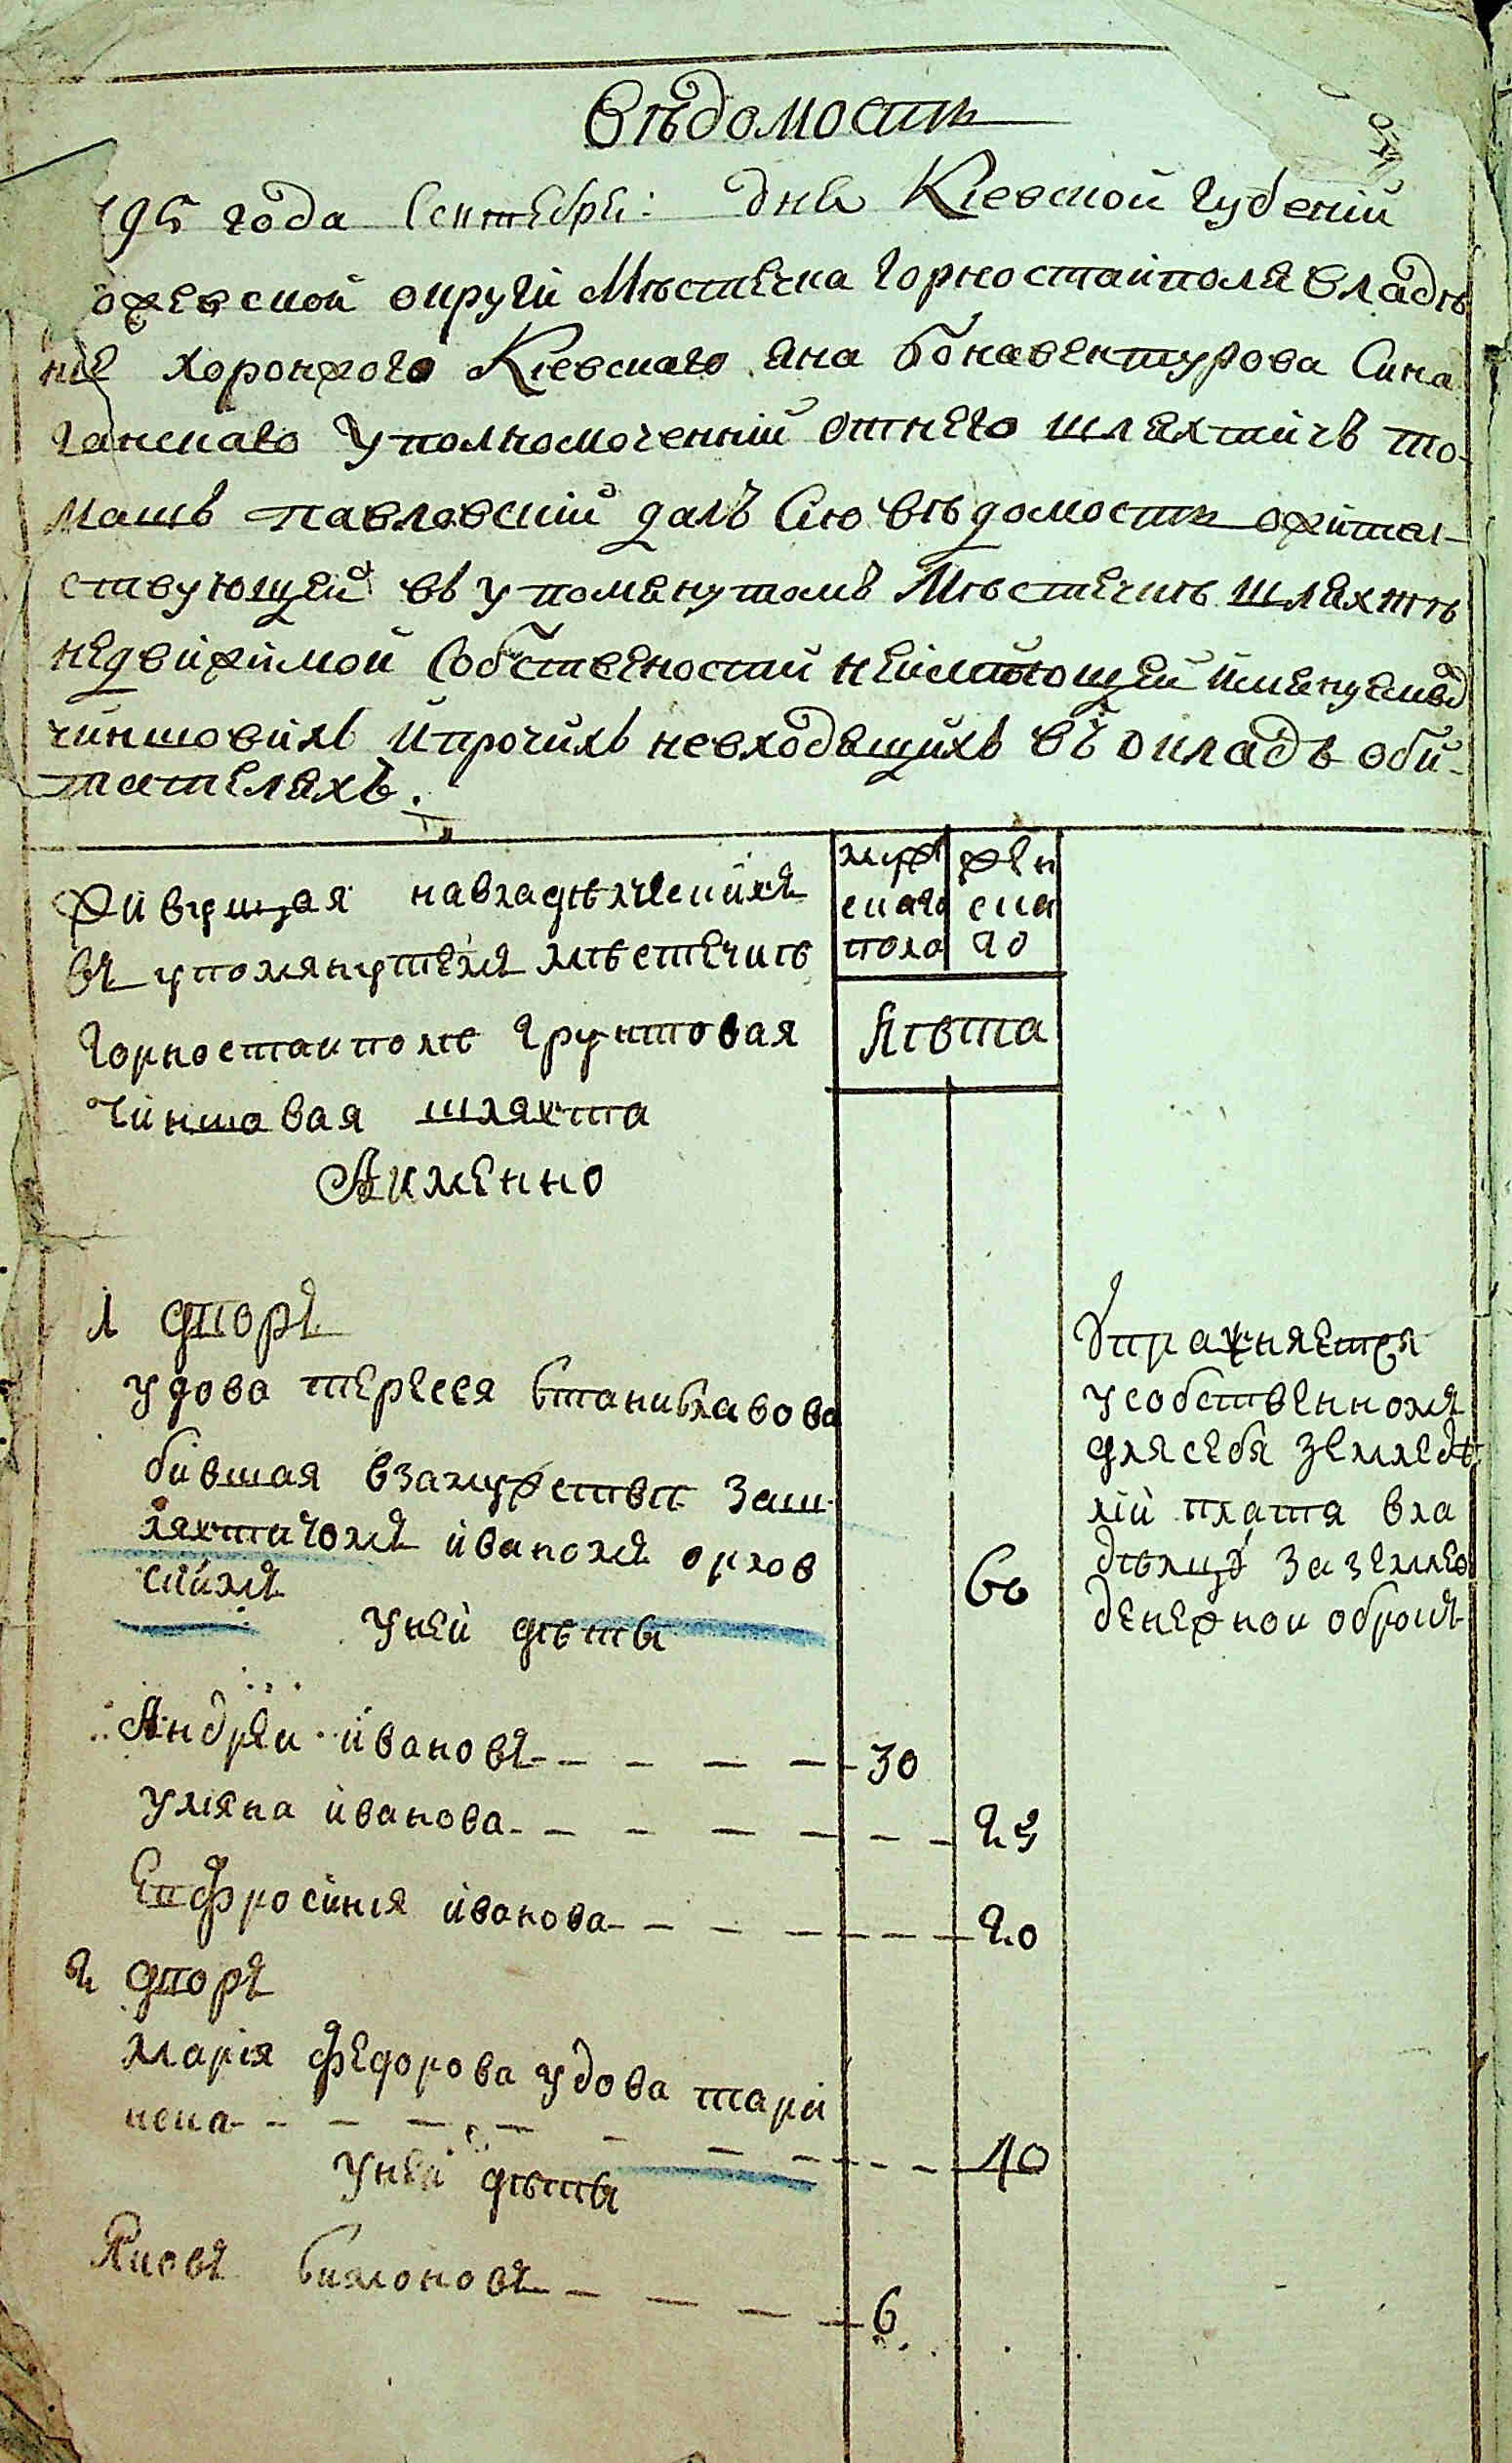 Вѣдомость
795 года Сентебря: дня Кіевской Губеніи
ожевской округи Мѣстечка Горностайполя владѣ
ніе хоронжого Кіевского яна бонавентурова Сина
ганскаго Уполномоченній отнего шляхтичъ то-
машъ павловскій далъ Сію вѣдомость ожител-
ствующей въ упомянутомъ Мѣстечкѣ шляхтѣ
недвижимой Собственостай неимѣющей именуемой
чиншовихъ ипрочихъ невходящихъ въ окладъ оби-
тателяхъ.
живущая навладѣлческихъ
въ упомянутемъ мѣстечкѣ
Горностаиполѣ грунтовая
Чиншовая шляхта
Аименно
муж
скаго
пола
жен
ска
го
Лѣта
1 дворъ
удова тересся Станиславова
бившая взамужствѣ заш
ляхтичомъ иваномъ орлов
скимъ
60
унеи дѣты
Упражняется
усобственномъ
длясебя земледѣ
лій платя вла
дѣлцу заземлю
денежнои оброкъ
Андреи ивановъ 30
уляна иванова 23
Епфросиния иванова 20
2 дворъ
марія федорова удова тари
нска 40
унеи дѣты
Яковъ Симоновъ 6